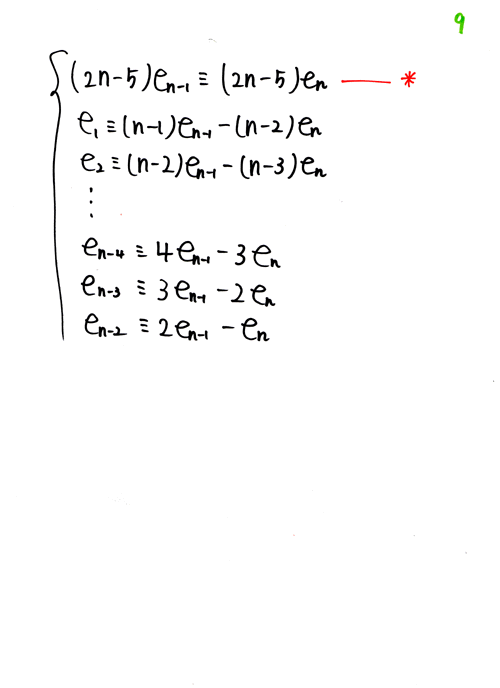 9
(2n-5)eₙ₋₁ ≡ (2n-5)eₙ — *
e₁ ≡ (n-1)eₙ₋₁ - (n-2)eₙ
e₂ ≡ (n-2)eₙ₋₁ - (n-3)eₙ
⋮
eₙ₋₄ ≡ 4eₙ₋₁ - 3eₙ
eₙ₋₃ ≡ 3eₙ₋₁ - 2eₙ
eₙ₋₂ ≡ 2eₙ₋₁ - eₙ